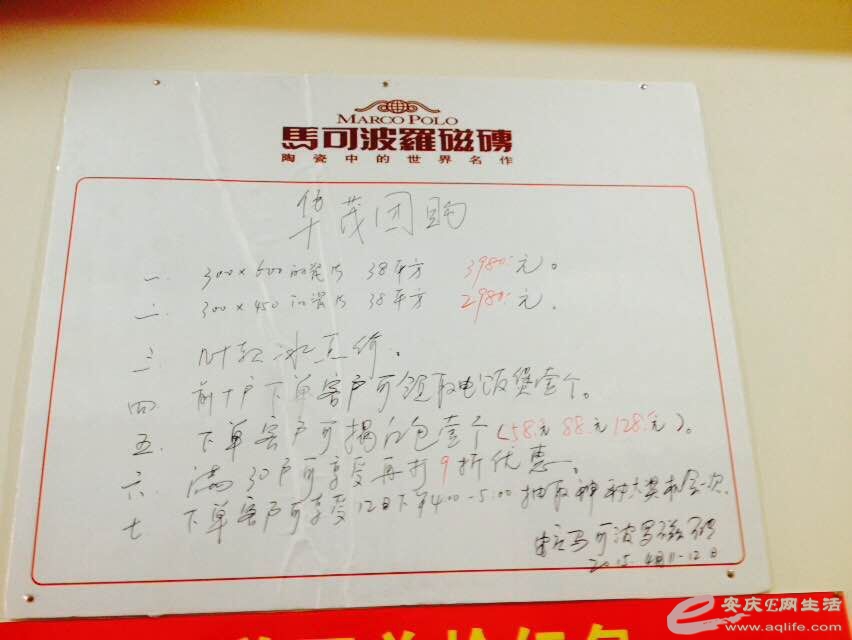 MARCO POLO
馬可波羅磁磚
陶瓷中的世界名作
华茂团购
一. 300×600的瓷片 38平方 3980.元。
二. 300×450的瓷片 38平方 2980.元.
三. 冰点价。
四. 前十户下单客户可领取电饭煲壹个。
五. 下单客户可揭红包壹个(58元 88元 128元)。
六. 满30户可享受再打9折优惠。
七 下单客户可享受12日下午4:00-5:00抽取神秘大奖
马可波罗磁砖
2015.4月11-12日
安庆E网生活
www.aqlife.com